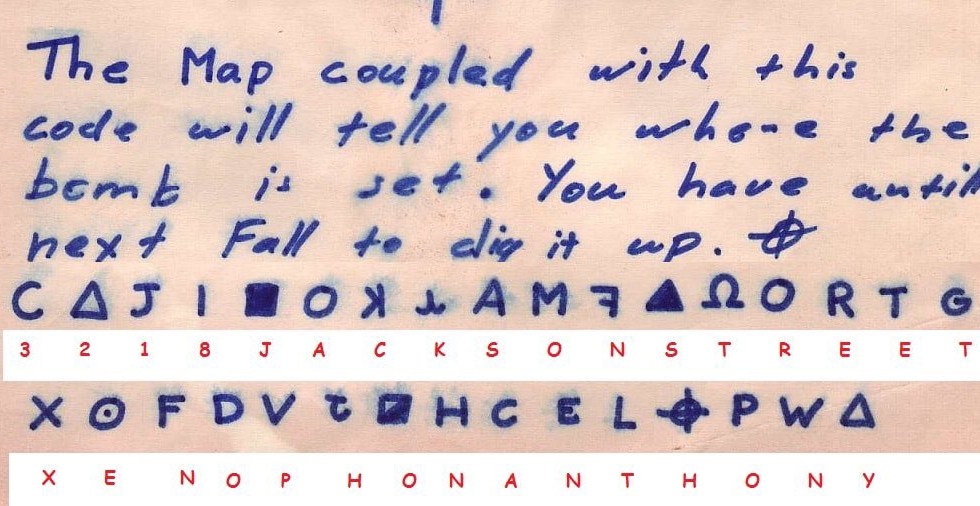 The Map coupled with this
code will tell you where the
bomb is set. You have untill
next Fall to dig it up. ⌖
C Δ J I ■ O ꓘ A M ꟻ ▲ Ω O R T G
3 2 1 8 J A C K S O N S T R E E T
X ⊙ F D V H C E L ⌖ P W Δ
X E N O P H O N A N T H O N Y